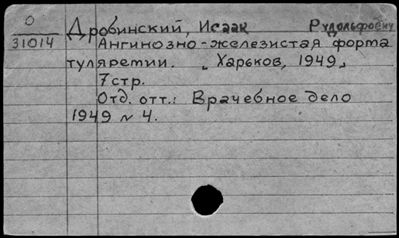 О
31014
Дробинский, Исаак Рудольфович
Ангинозно-железистая форта
туляретии. „Харьков, 1949„
7 стр.
Отд. отт.: Врачебное дело
1949 № 4.